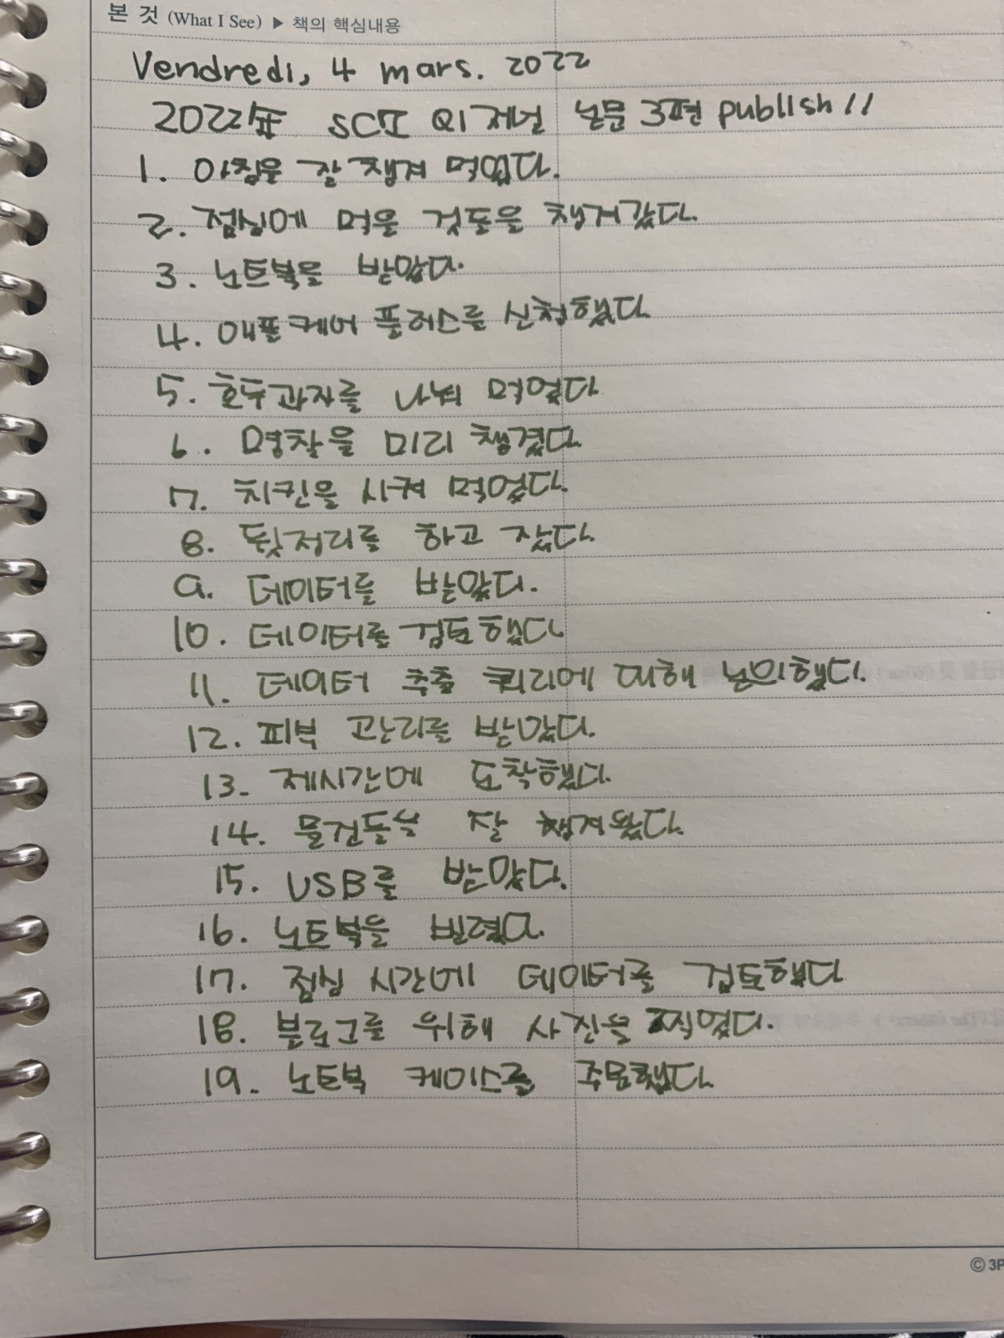 본 것 (What I See) ▶ 책의 핵심내용
Vendredi, 4 mars. 2022
2022年 SCI Q1 저널 논문 3편 publish!!
1. 아침을 잘 챙겨 먹었다.
2. 점심에 먹을 것들을 챙겨갔다.
3. 노트북을 받았다.
4. 애플케어 플러스를 신청했다
5. 호두과자를 나눠 먹었다
6. 명찰을 미리 챙겼다.
7. 치킨을 시켜 먹었다.
8. 뒷정리를 하고 잤다.
9. 데이터를 받았다.
10. 데이터를 검토했다
11. 데이터 추출 쿼리에 대해 논의했다.
12. 피부 관리를 받았다.
13. 제시간에 도착했다.
14. 물건들을 잘 챙겨왔다.
15. USB를 받았다.
16. 노트북을 빌렸다.
17. 점심 시간에 데이터를 검토했다
18. 블로그를 위해 사진을 찍었다.
19. 노트북 케이스를 주문했다.
© 3P